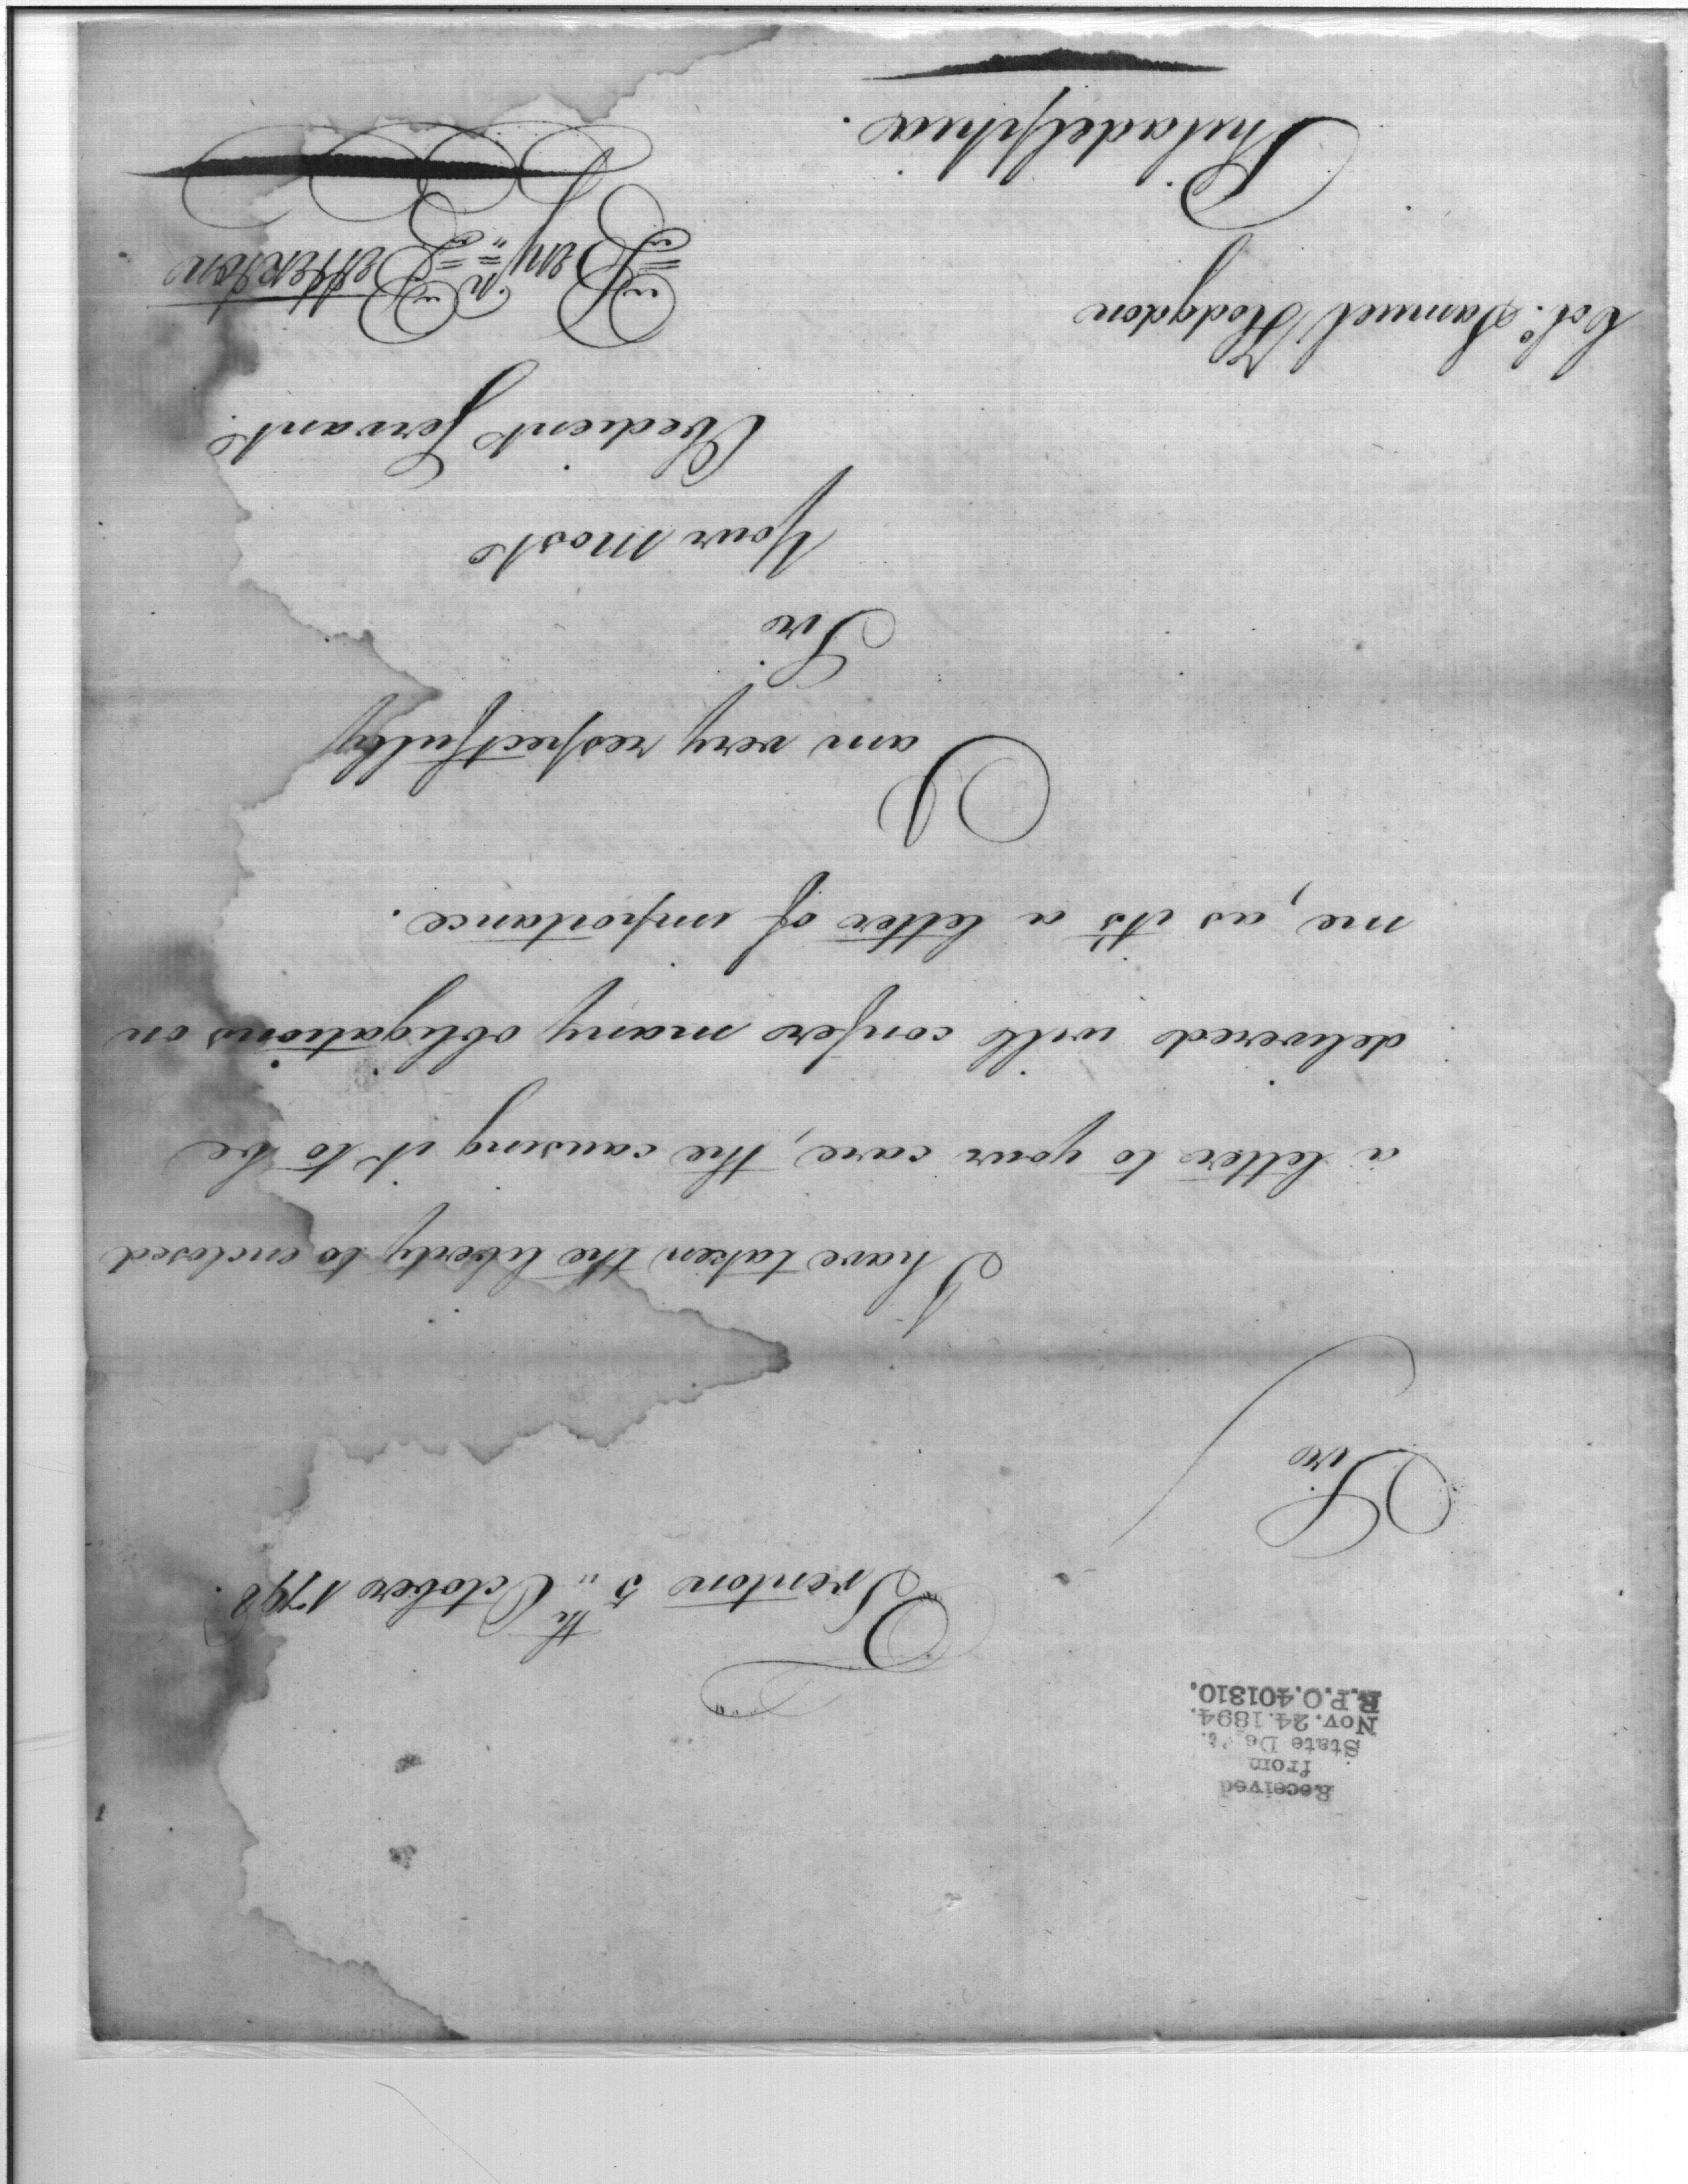 Received
from
State Dep't.
Nov. 24. 1894.
R.P.O. 401310.
Trenton 5th October 1798.
Sir
I have taken the liberty to enclosed
a letter to your care, the causing it to be
delivered will confer many obligations on
me, as it's a letter of importance.
I am very respectfully
Sir
Your most
Obedient Servant.
Benjn Betterton
Colo. Samuel Hodgdon
Philadelphia.